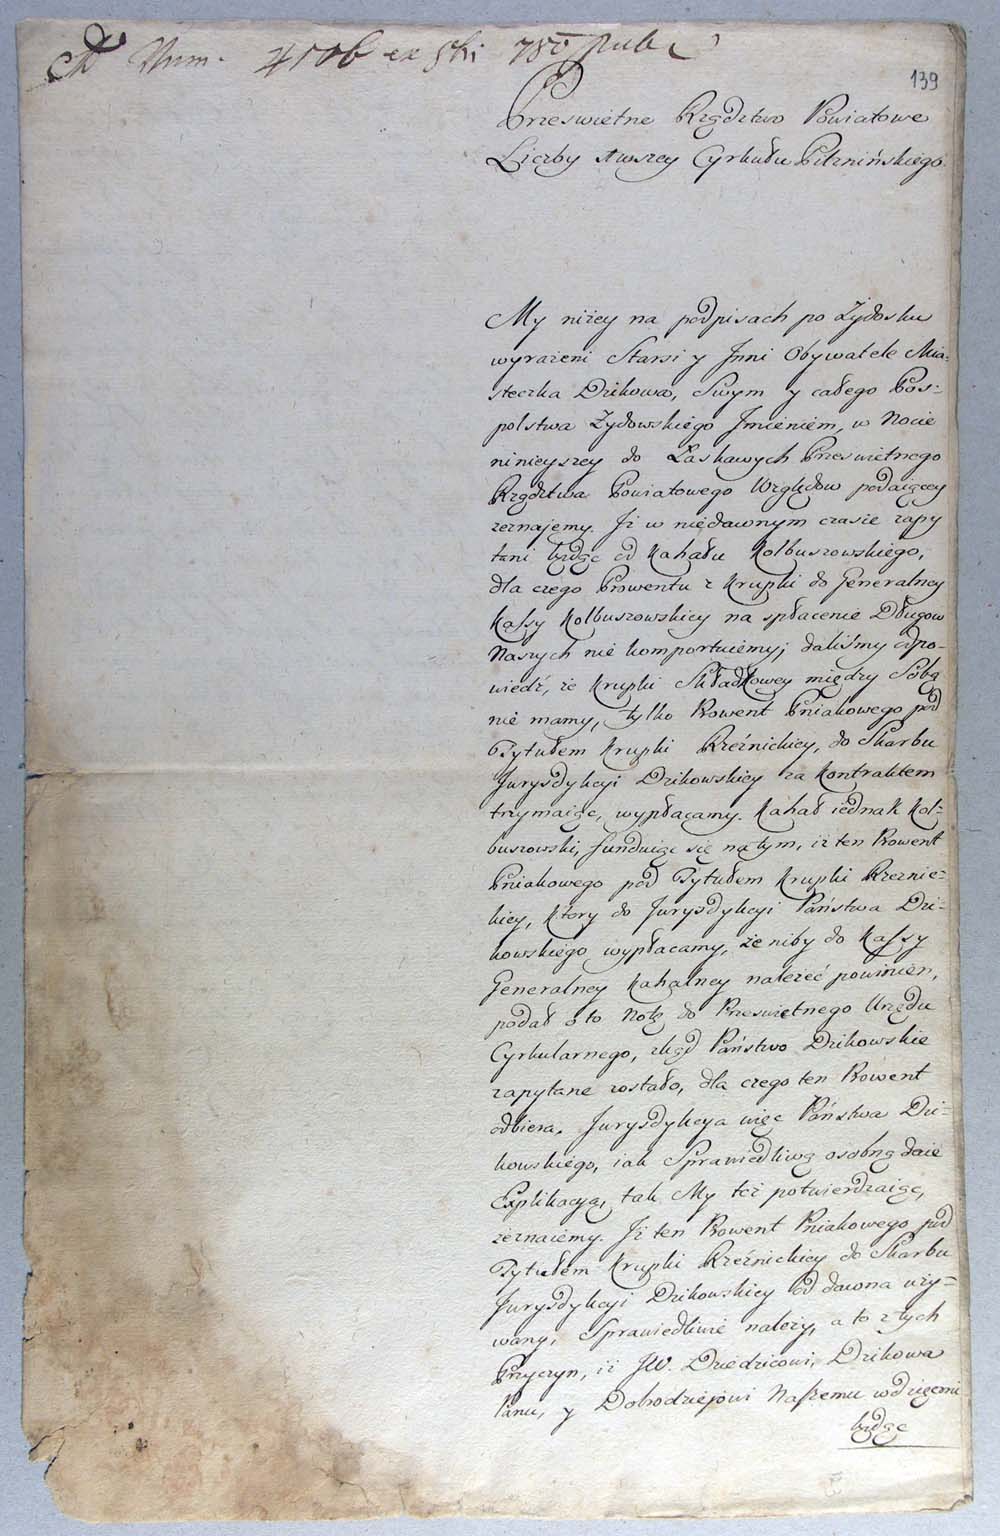 Ad Num. 4506 ex Sbri 785
139
Prześwietne Rządztwo Powiatowe
Liczby 4wszey Cyrkułu Pilznińskiego
My niżey na podpisach po Żydosku
wyrażeni Starsi y Jnni Obywatele Mia-
steczka Dzikowa, Swym y całego Pos-
polstwa Żydowskiego Jmieniem, w Nocie
ninieyszey do Łaskawych Prześwietnego
Rządztwa Powiatowego Względow podaiący
zeznajemy. Jż w niedawnym czasie zapy
tani będąc od Kahału Kolbuszowskiego,
dla czego Prowentu z Krupki do Generalney
Kassy Kolbuszowskiey na spłacenie Długow
Naszych nie komportuiemy; daliśmy odpo-
wiedź, że Krupki Składkowey między Sobą
nie mamy, tylko Prowent Pniakowego pod
Tytułem Krupki Rzeźnickiey, do Skarbu
Jurysdykcyi Dzikowskiey za Kontraktem
trzymaiąc, wypłacamy. Kahał iednak Kol-
buszowski, funduiąc się na tym, iż ten Prowent
Pniakowego pod Tytułem Krupki Rzeznic-
kiey, Ktory do Jurysdykcyi Państwa Dzi-
kowskiego wypłacamy, że niby do Kassy
Generalney Kahalney należeć powinien,
podał o to Notę do Prześwietnego Urzędu
Cyrkularnego, zkąd Państwo Dzikowskie
zapytane zostało, dla czego ten Prowent
odbiera. Jurysdykcya więc Państwa Dzi-
kowskiego, iak Sprawiedliwą osobną daie
Explikacyą, tak My też potwierdzaiąc,
zeznaiemy. Jż ten Prowent Pniakowego pod
Tytułem Krupki Rzeźnickiey do Skarbu
Jurysdykcyi Dzikowskiey od dawna uży-
wany, Sprawiedliwie należy, a to z tych
Przyczyn, iż JW. Dziedzicowi Dzikowa
Panu, y Dobrodziejowi Naszemu wdzięcmi
będąc